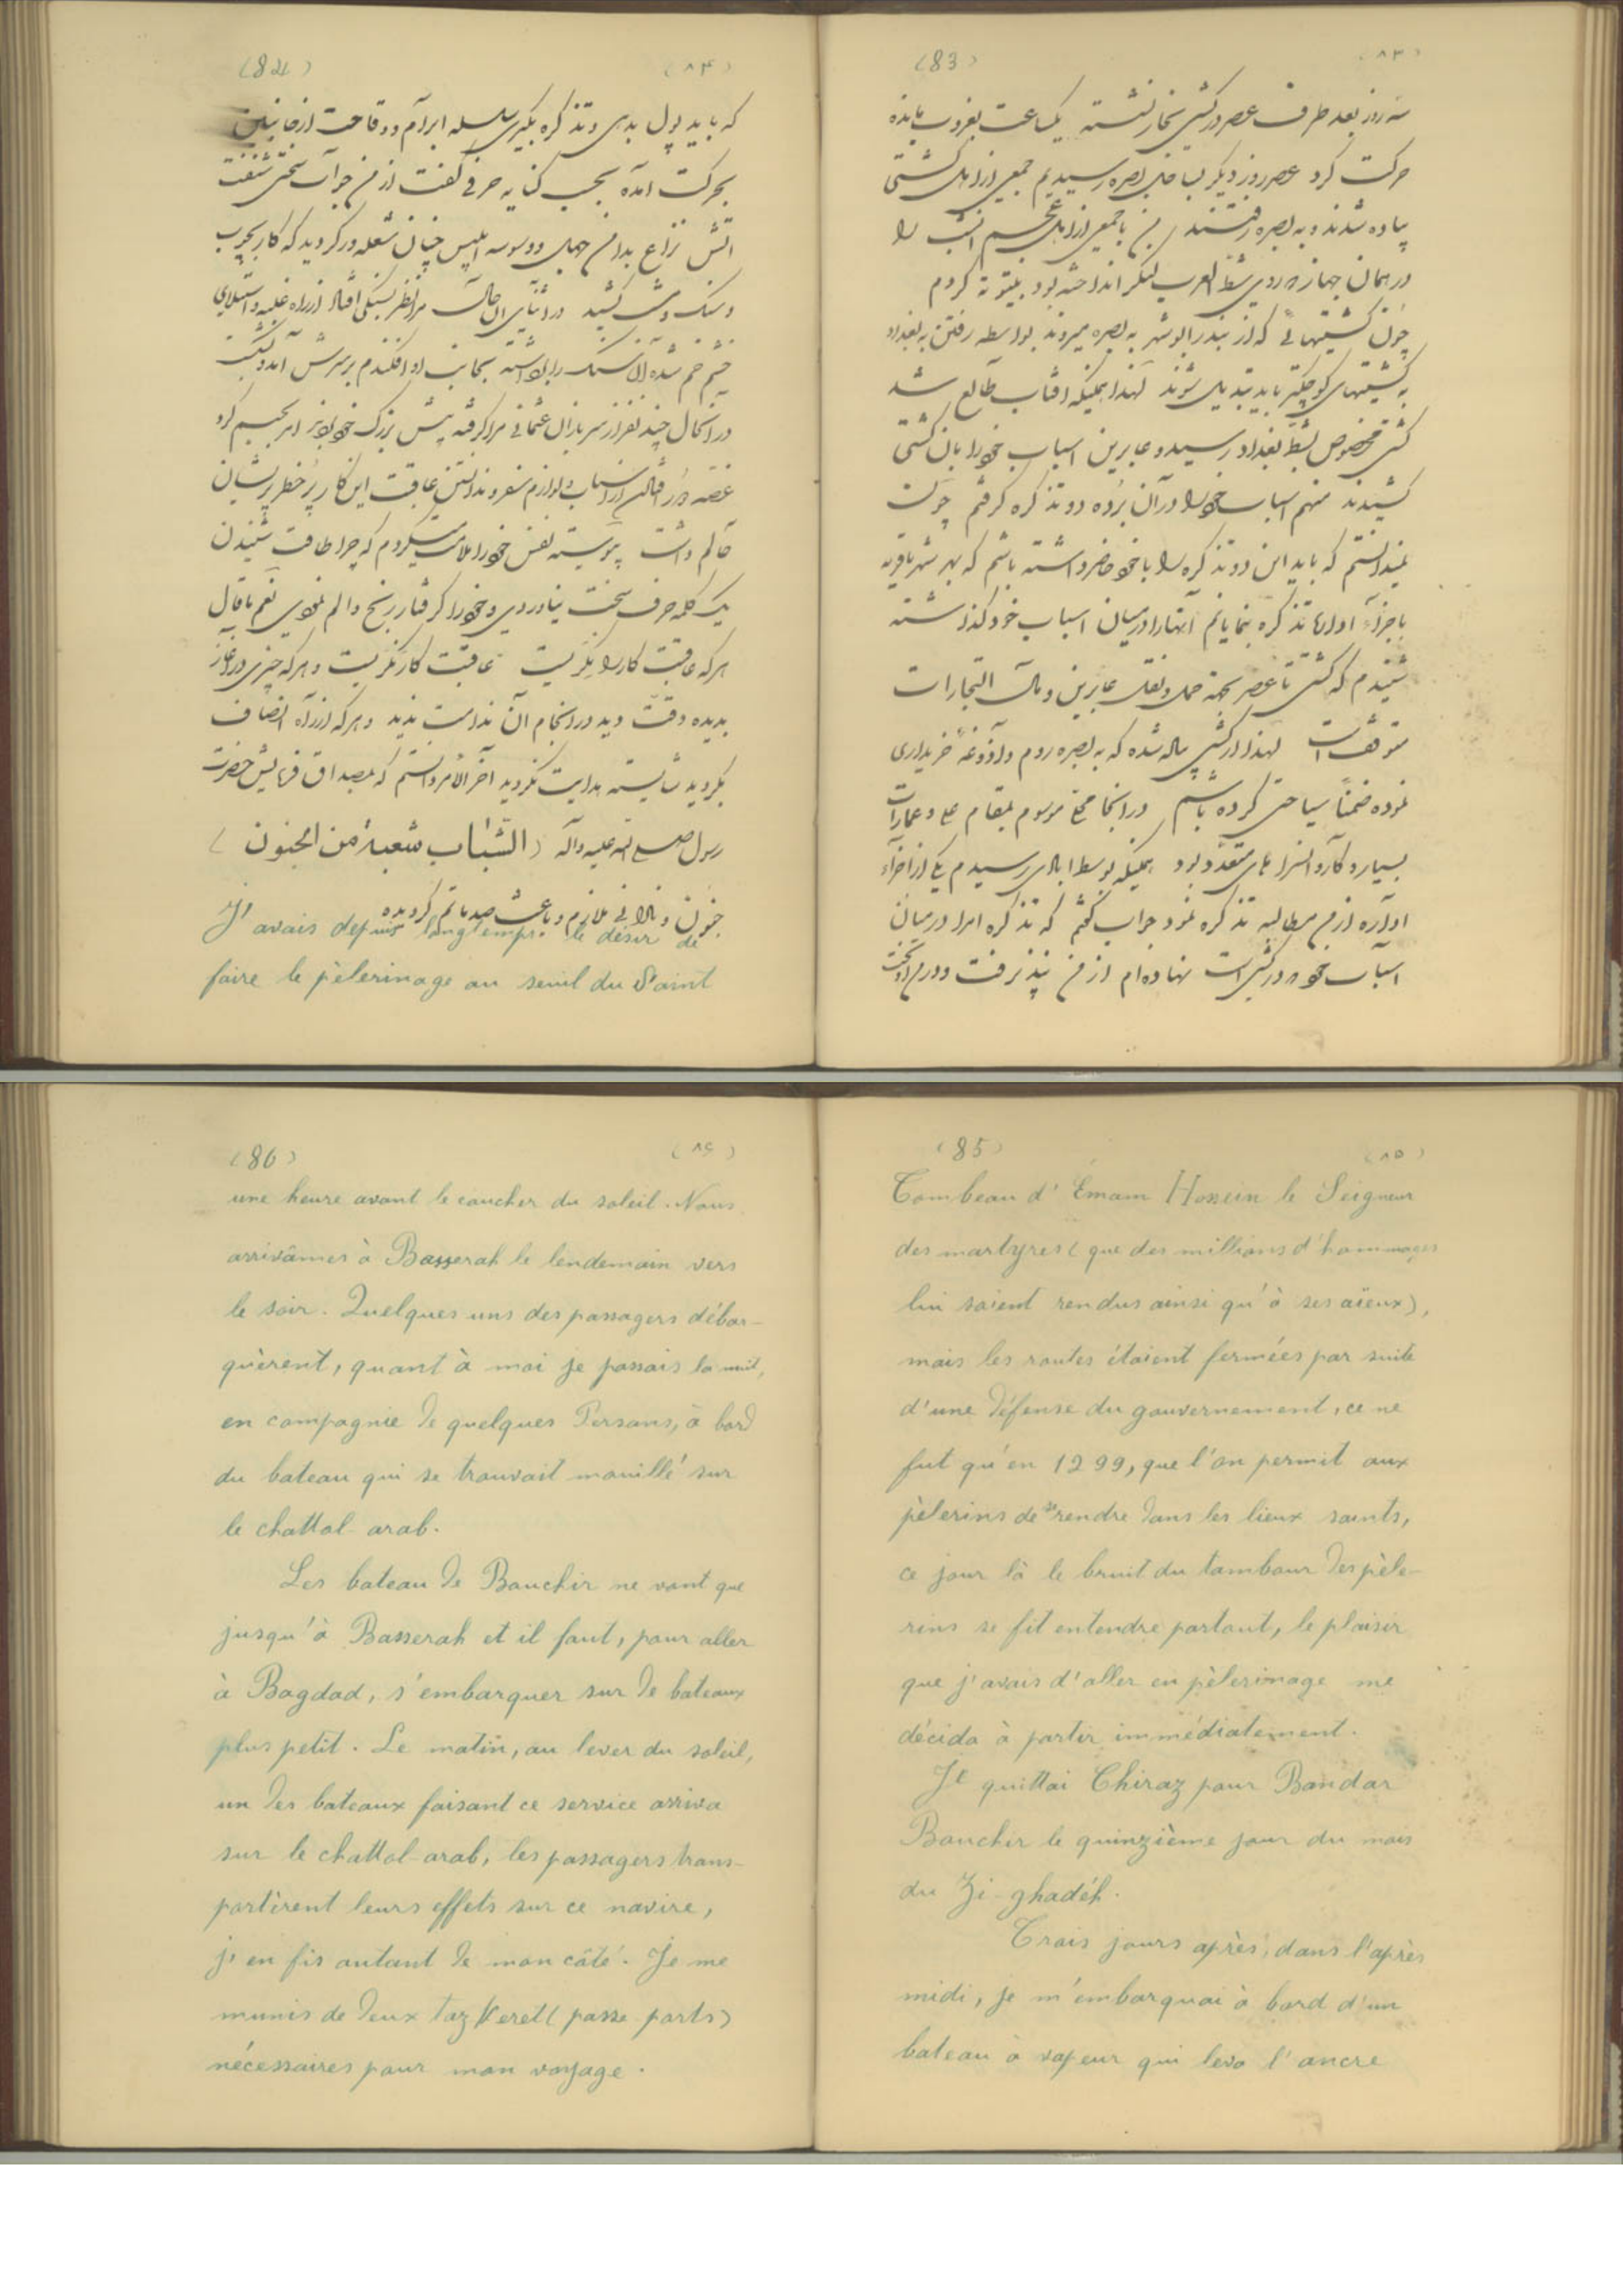 (83) (۸۳)
سه روز بعد طرف عصر در کشتی بخار نشسته یکساعت بغروب مانده
حرکت کرد عصر روز دیگر بساحل بصره رسیدیم جمعی از اهل کشتی
پیاده شدند و به بصره رفتند من با جمعی از اهل عجم انشب را
در همان جهاز که در روی شط العرب لنگر انداخته بود بیتوته کردم
چون کشتیهائی که از بندر ابوشهر به بصره میروند بواسطه رفتن به بغداد
به کشتیهای کوچکتر باید تبدیل شوند لهذا همینکه افتاب طالع شد
کشتی مخصوص بشط بغداد رسید و عابرین اسباب خود را بان کشتی
کشیدند منهم اسباب خود را در آن برده دو تذکره گرفتم چون
نمیدانستم که باید این دو تذکره را با خود حاضر داشته باشم که بهر شهر یا قریه
باجزآء اداره تذکره بنمایانم آنها را در میان اسباب خود گذاشته
شنیدم که کشتی تا عصر بجهة حمل و نقل عابرین و مال التجارات
متوقف است لهذا در کشتی پیاله شده که به بصره روم و آذوقه خریداری
نموده ضمناً سیاحتی کرده باشم در انجا محلی موسوم بمقام علی و عمارات
بسیار و کاروانسراهای متعدد بود همینکه بوسط ابادی رسیدم یکی از اجزآء
اداره از من مطالبه تذکره نمود جواب گفتم که تذکره ام را در میان
اسباب خود در کشتی است نهاده‌ام از من نپذیرفت و در من اویخت
(84) (۸۴)
که باید پول بدهی و تذکره بگیری سلسله ابرام و وقاحت از جانبین
بحرکت امده بحسب کنایه حرفی گفت از من جواب سختی شنفت
اتش نزاع بدامن جهل و وسوسه ابلیس چنان شعله ور گردید که کار بچوب
و سنگ و مشت کشید در اثنای ان حال مرا نظر بسنگی افتاد از راه غلبه و استیلای
خشم خم شده ان سنگ را برداشته بجانب او افکندم بر سرش آمد و شکست
در انحال چند نفر از سربازان عثمانی مرا گرفته پیش بزرگ خود بردند امر بحبسم کرد
غصه دور افتادن از اسباب و لوازم سفر و ندانستن عاقبت این کار پر خطر پریشان
حالم داشت پیوسته نفس خود را ملامت میکردم که چرا طاقت شنیدن
یک کلمه حرف سخت نیاوردی و خود را گرفتار رنج و الم نمودی نعم ما قال
هر که عاقبت کار را نگریست عاقبت کار نگریست و هر که چیزی در آغاز
بدیده دقت دید در انجام آن ندامت ندید و هر که از راه انصاف
بگردید شایسته هدایت نگردید آخر الأمر دانستم که بمصداق فرمایش حضرت
رسول صلی الله علیه وآله (الشّباب شعبة من الجنون)
جنون و نادانی ملازم و باعث صدماتم گردیده
J'avais depuis longtemps le désir de
faire le pèlerinage au seuil du Saint
(85) (۸۵)
Tombeau d'Émam Hossein le Seigneur
des martyres (que des millions d'hommages
lui soient rendus ainsi qu'à ses aïeux),
mais les routes étaient fermées par suite
d'une défense du gouvernement, ce ne
fut qu'en 1299, que l'on permit aux
pèlerins de se rendre dans les lieux saints,
ce jour là le bruit du tambour des pèle-
rins se fit entendre partout, le plaisir
que j'avais d'aller en pèlerinage me
décida à partir immédiatement.
Je quittai Chiraz pour Bandar
Bouchir le quinzième jour du mois
du Zi-ghadéh.
Trois jours après, dans l'après
midi, je m'embarquai à bord d'un
bateau à vapeur qui leva l'ancre
(86) (۸۶)
une heure avant le coucher du soleil. Nous
arrivâmes à Basserah le lendemain vers
le soir. Quelques uns des passagers débar-
quèrent, quant à moi je passais la nuit,
en compagnie de quelques Persans, à bord
du bateau qui se trouvait mouillé sur
le chattol-arab.
Les bateau de Bouchir ne vont que
jusqu'à Basserah et il faut, pour aller
à Bagdad, s'embarquer sur de bateaux
plus petit. Le matin, au lever du soleil,
un des bateaux faisant ce service arriva
sur le chattol-arab, les passagers trans-
portèrent leurs effets sur ce navire,
j'en fis autant de mon côté. Je me
munis de deux tazkeret (passe-ports)
nécessaires pour mon voyage.